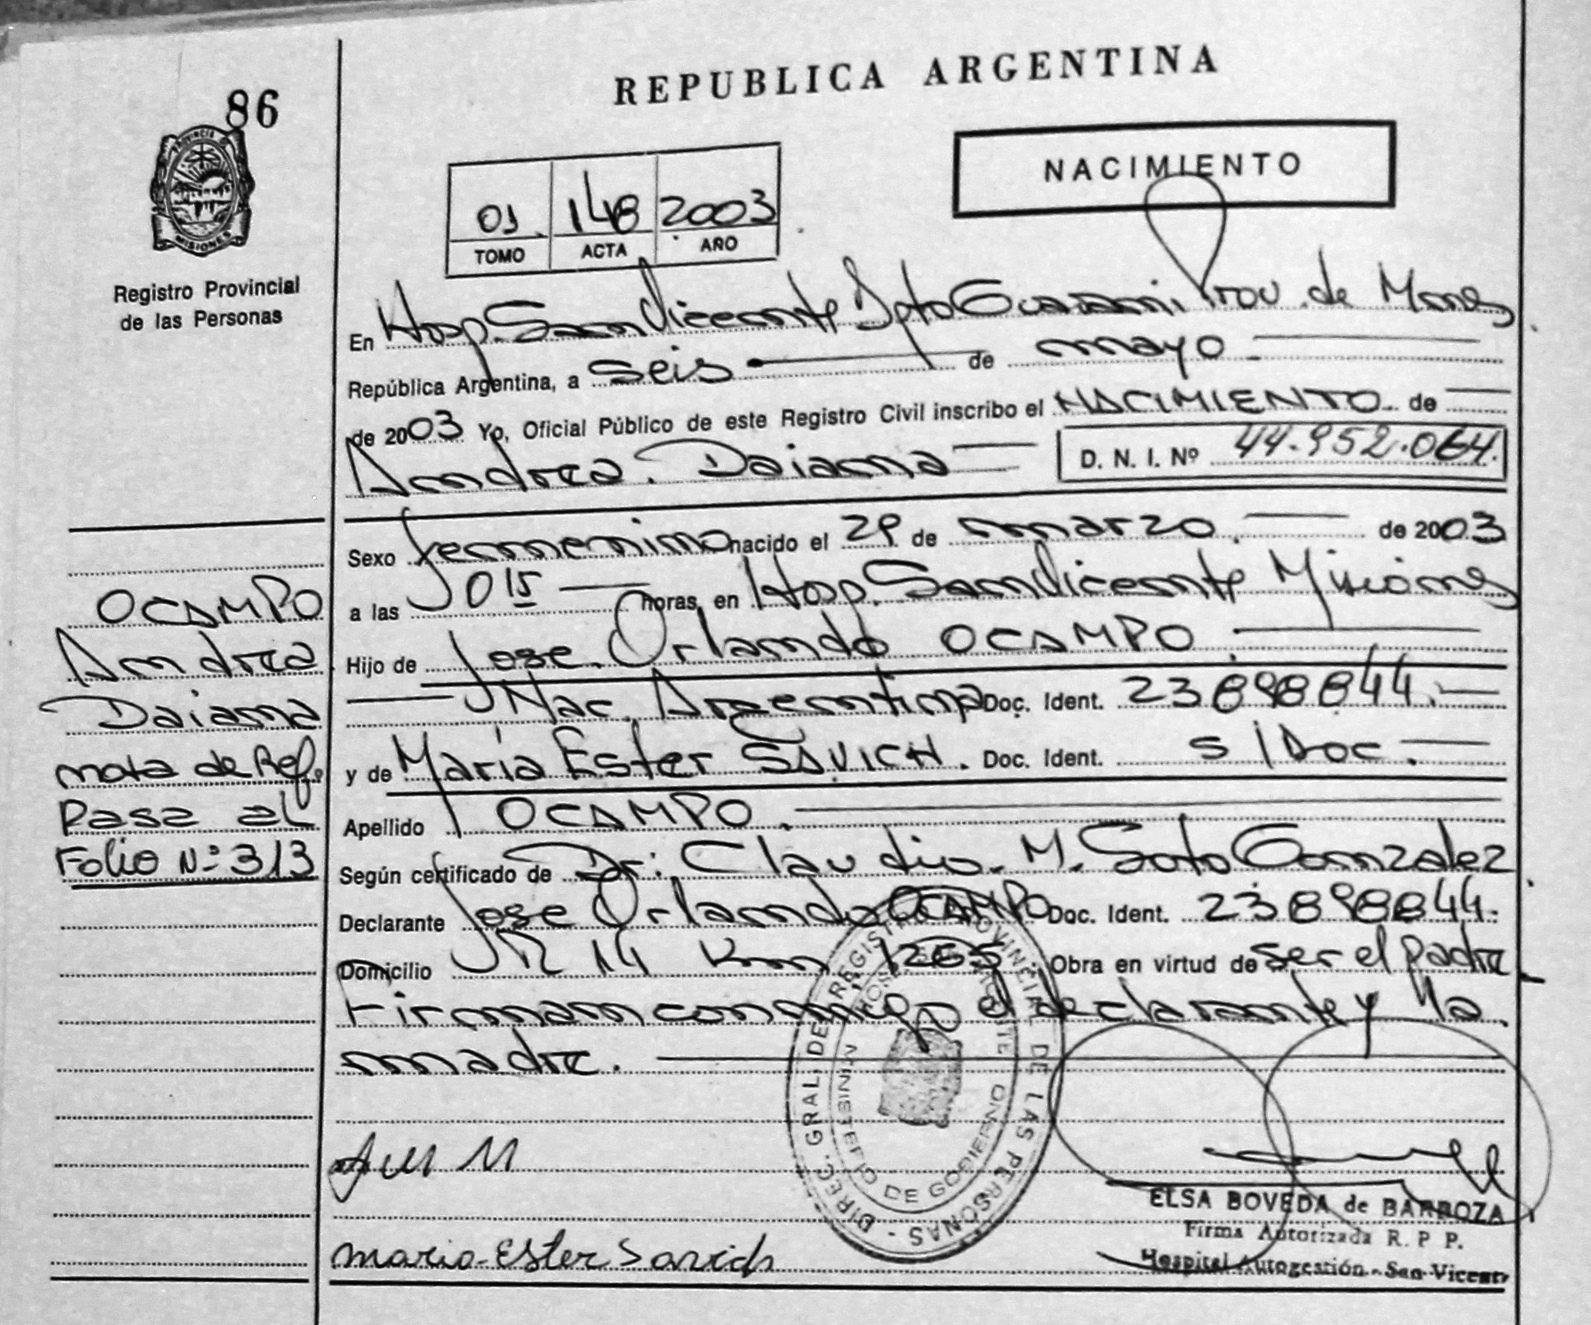 86
PROVINCIA DE
MISIONES
Registro Provincial
de las Personas
REPUBLICA ARGENTINA
NACIMIENTO
01 148 2003
TOMO ACTA AÑO
En Hosp. San Vicente Dpto Guarani Prov. de Mnes
República Argentina, a seis de mayo
de 2003 Yo, Oficial Público de este Registro Civil inscribo el NACIMIENTO de
Andrea Daiana D. N. I. Nº 44.952.064.
Sexo femenino nacido el 29 de marzo de 2003
a las 015 horas, en Hosp. San Vicente Misiones
Hijo de Jose Orlando OCAMPO
Nac. Argentina Doc. Ident. 23898844.
y de María Ester SAVICH. Doc. Ident. s/Doc.
Apellido OCAMPO.
Según certificado de Dr: Claudio M. Soto Gonzalez
Declarante Jose Orlando OCAMPO Doc. Ident. 23898844.
Domicilio R 14 Km 1265 Obra en virtud de ser el padre
Firman conmigo el declarante y la
madre.
OCAMPO
Andrea
Daiana
nota de Ref.
Pasa al
Folio Nº 313
DIREC. GRAL. DEL REGISTRO PROVINCIAL DE LAS PERSONAS -
MINISTERIO DE GOBIERNO
maria Ester Savich
ELSA BOVEDA de BARBOZA
Firma Autorizada R. P. P.
Hospital Autogestión - San Vicente